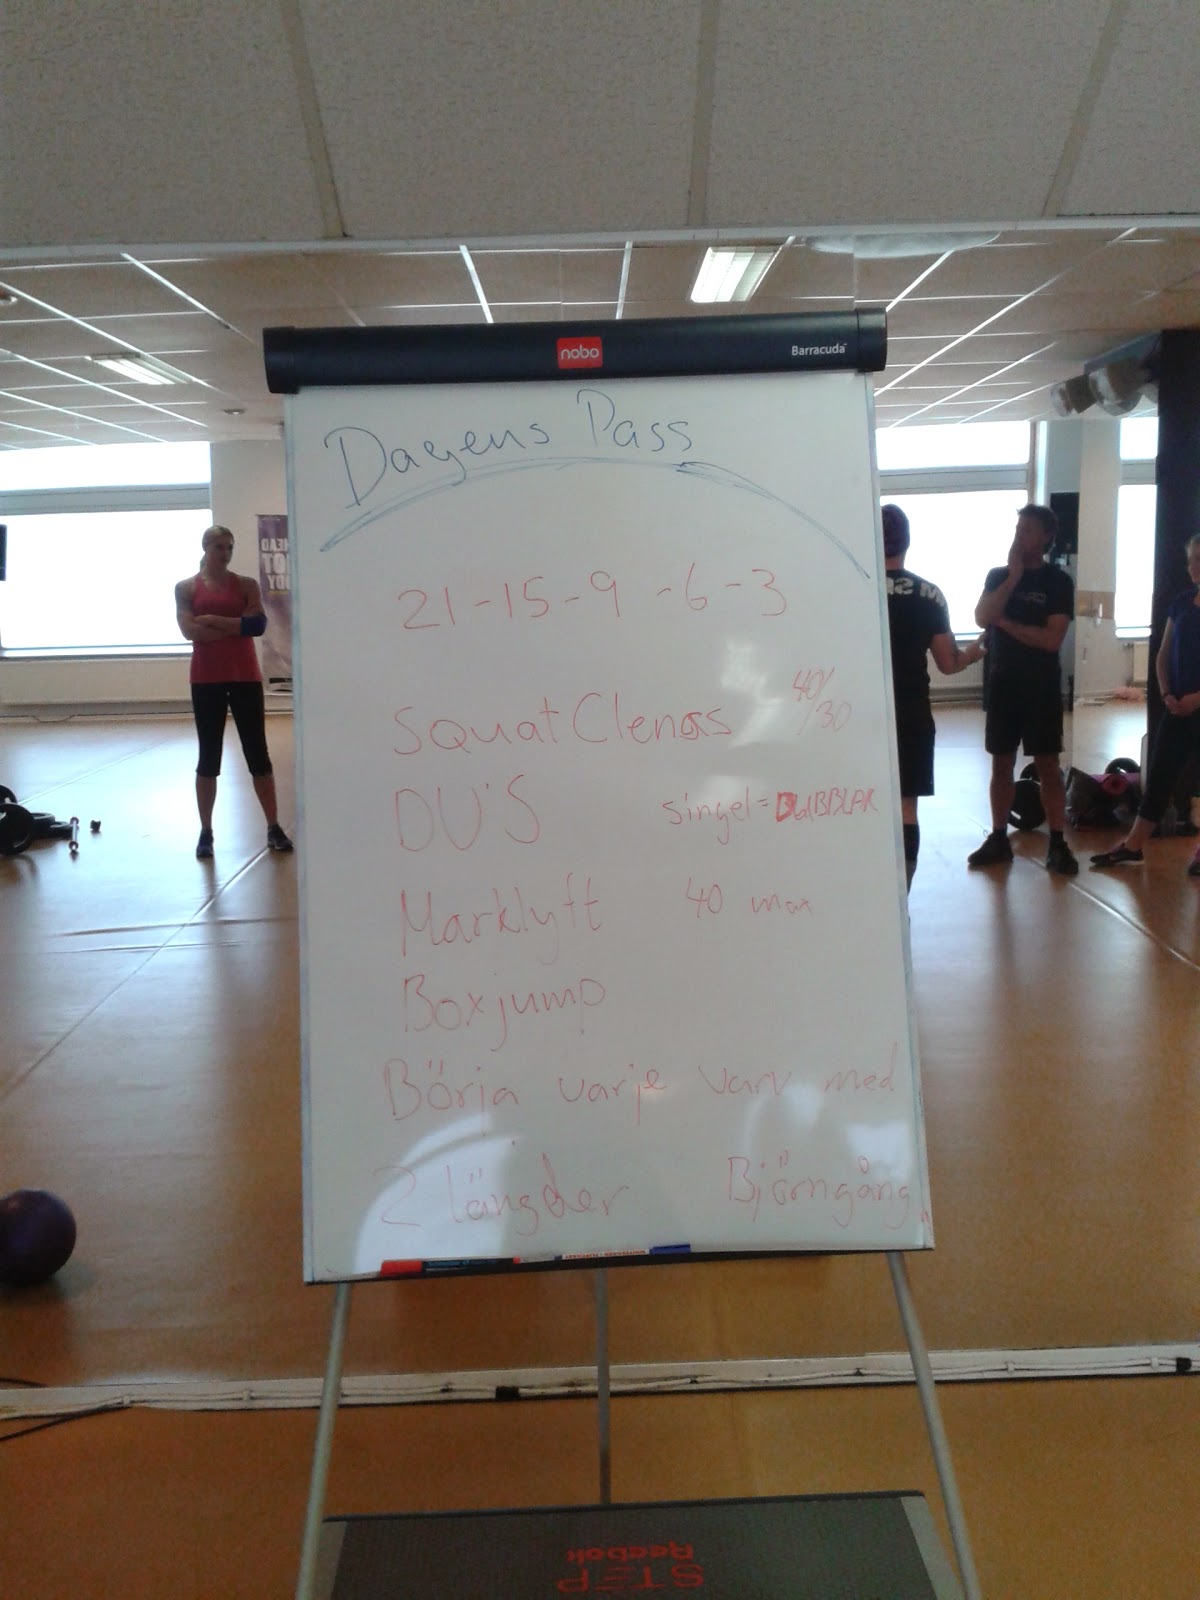 nobo
Barracuda
Dagens Pass
21-15-9-6-3
Squat Clenas 40/30
DU'S singel = DUBBLAR
Marklyft 40 max
Boxjump
Börja varje varv med
2 längder Björngång
STEP
Reebok